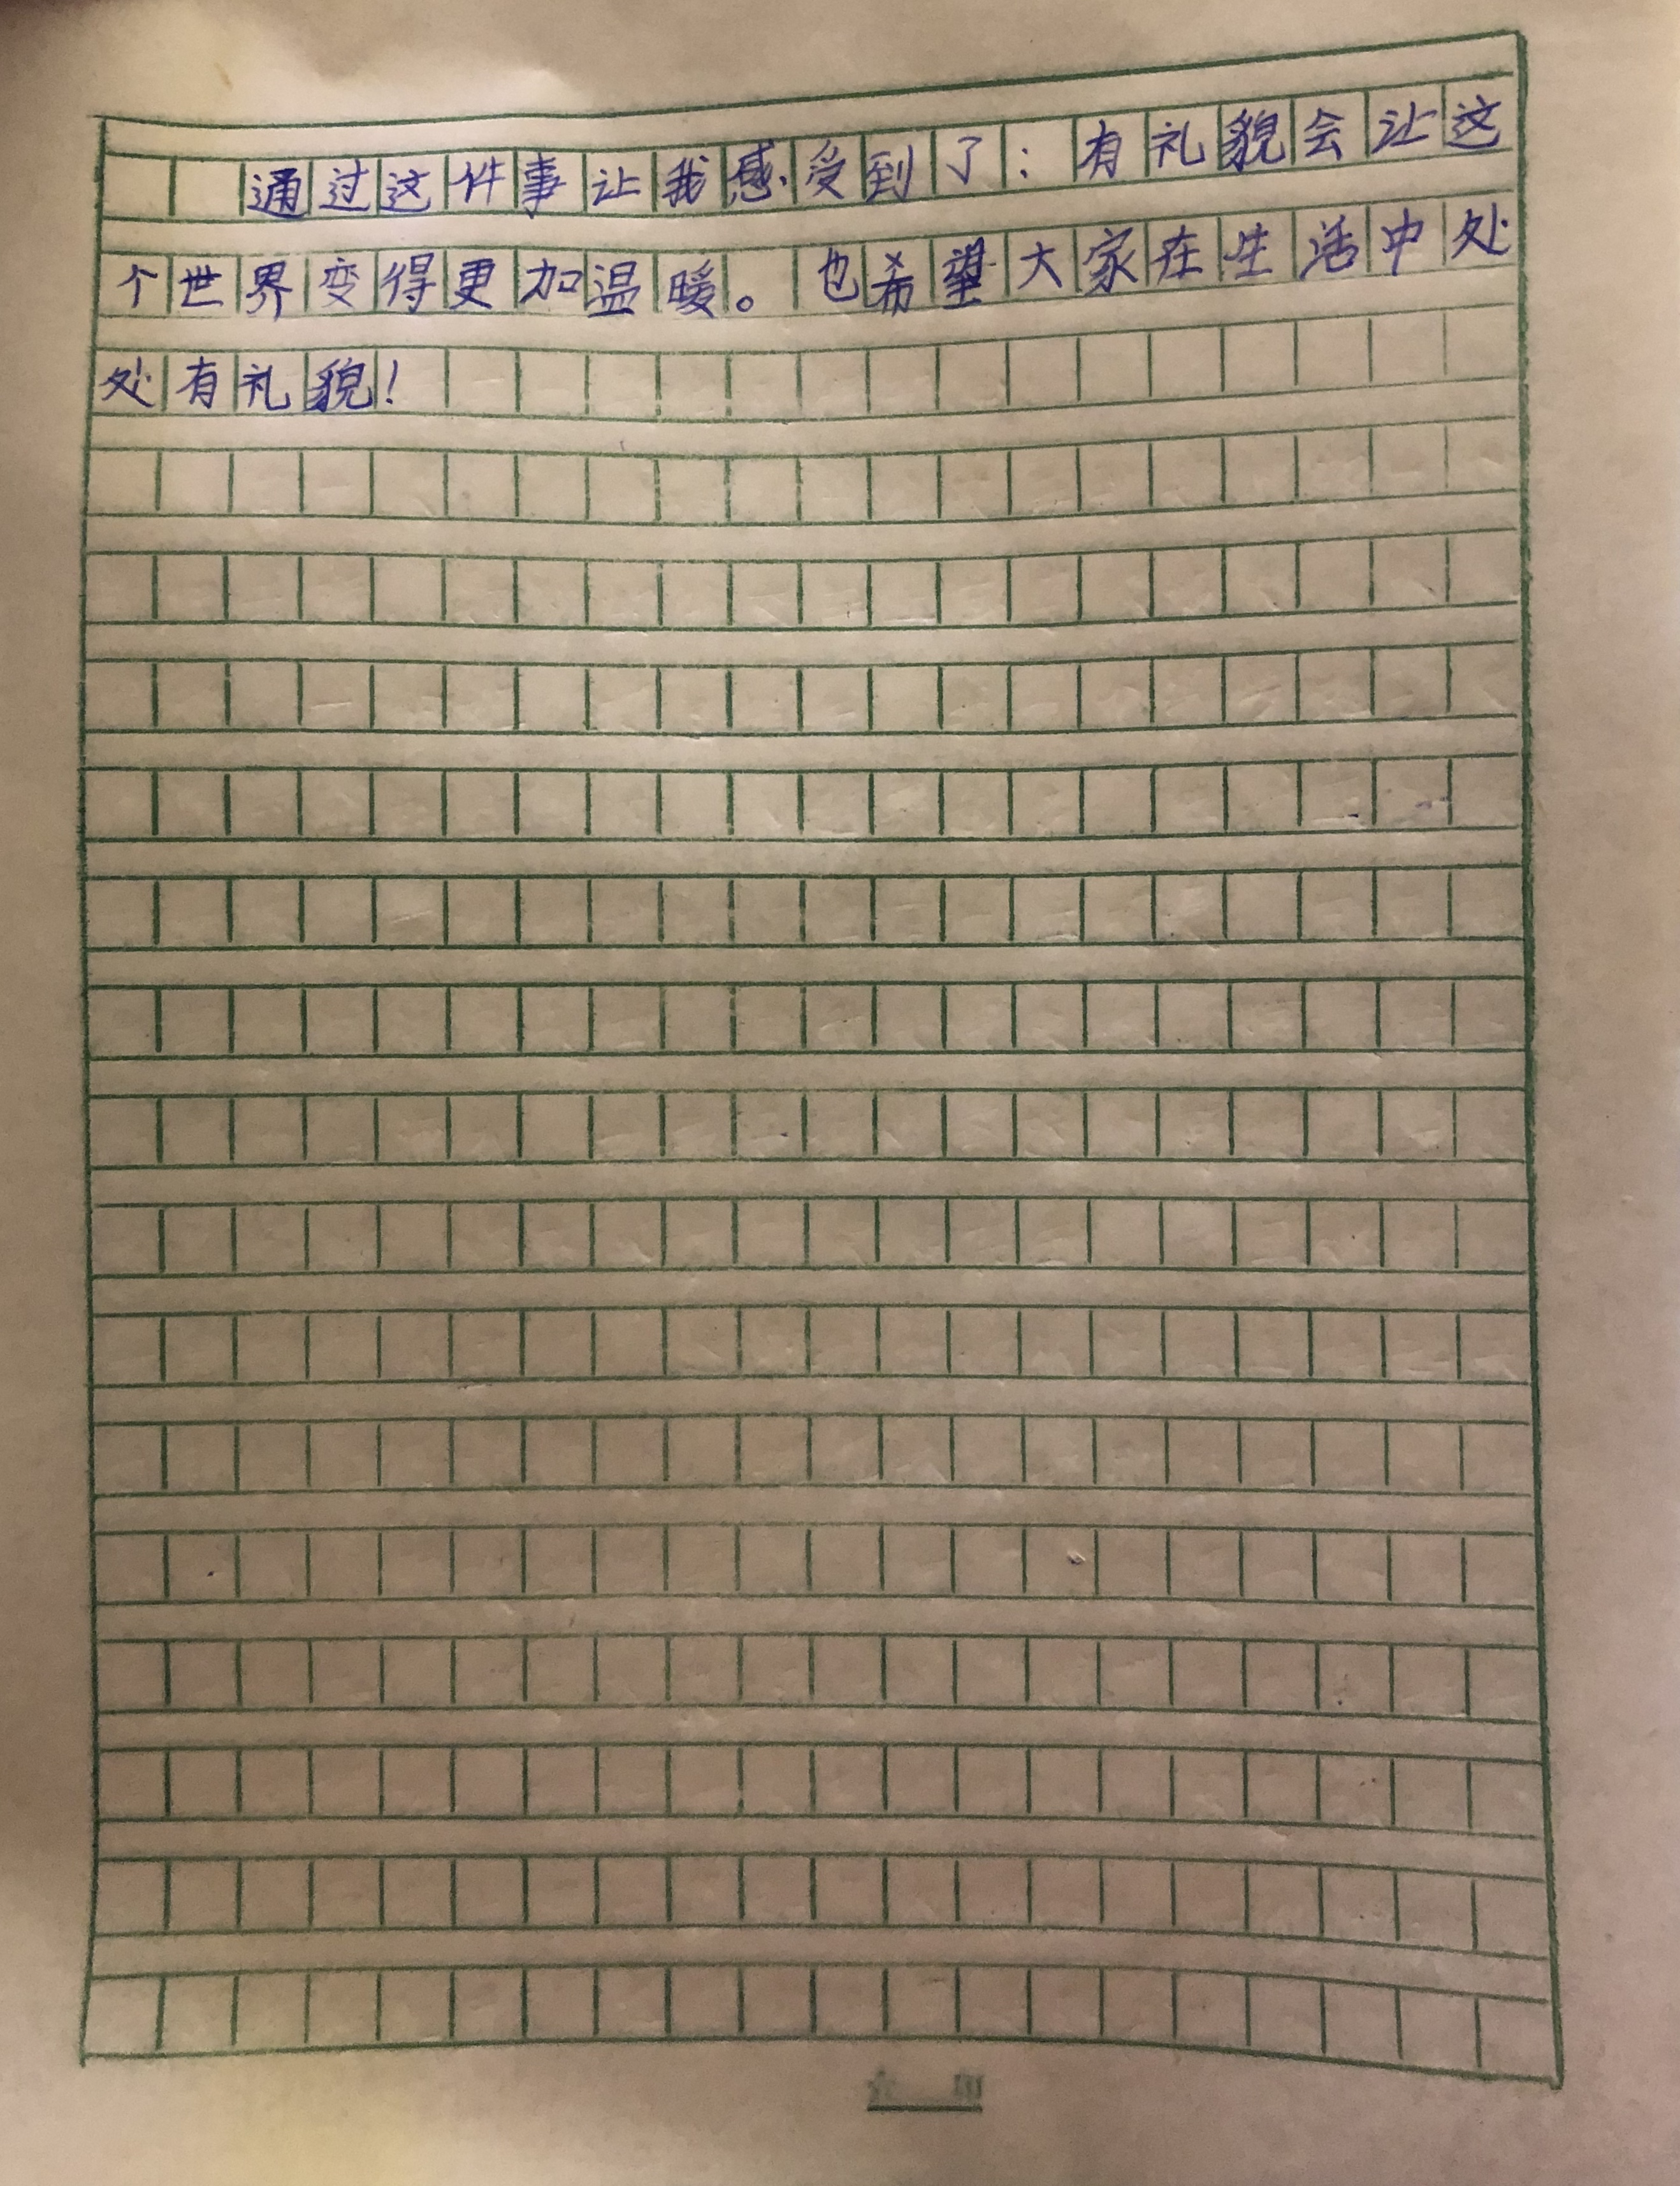 通过这件事让我感受到了：有礼貌会让这
个世界变得更加温暖。也希望大家在生活中处
处有礼貌！